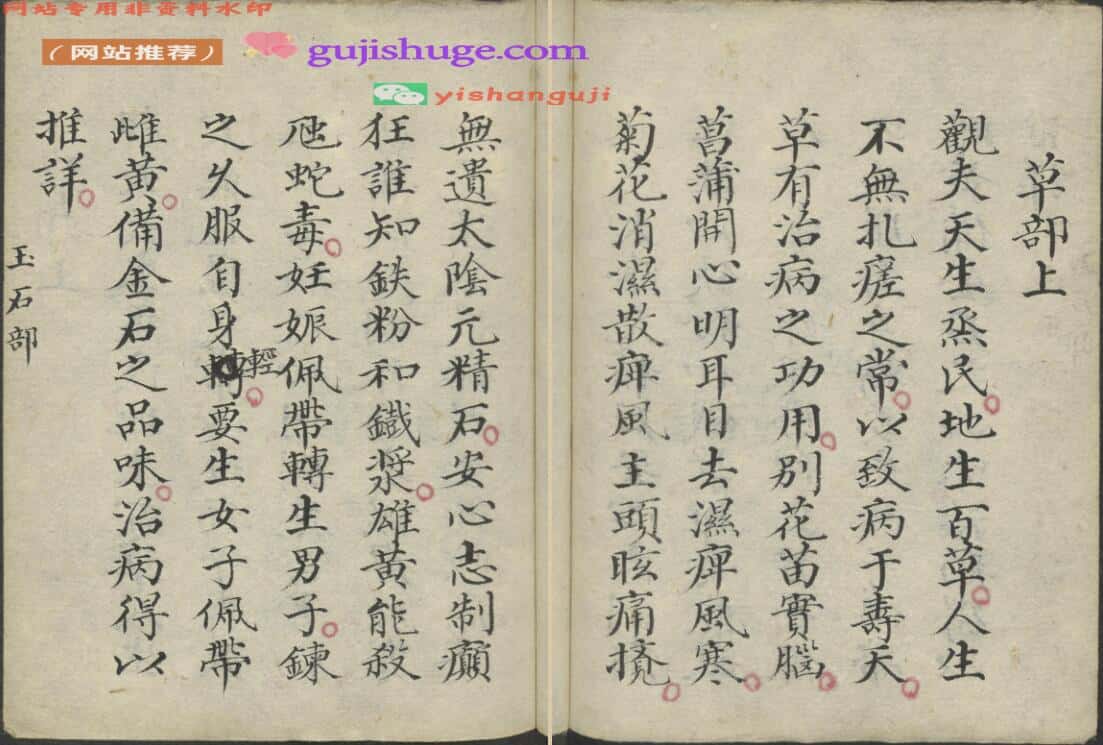 网站专用非资料水印
(网站推荐)
gujishuge.com
yishanguji
草部上
觀夫天生烝民地生百草人生
不無扎瘥之常以致病于壽夭
草有治病之功用别花苗實腦
菖蒲開心明耳目去濕痺風寒
菊花消濕散痺風主頭眩痛攪
無遺太陰元精石安心志制癲
狂誰知鉄粉和鐵漿雄黄能殺
虺蛇毒妊娠佩帶轉生男子鍊
之久服自身輕要生女子佩帶
雌黄備金石之品味治病得以
推詳
玉石部